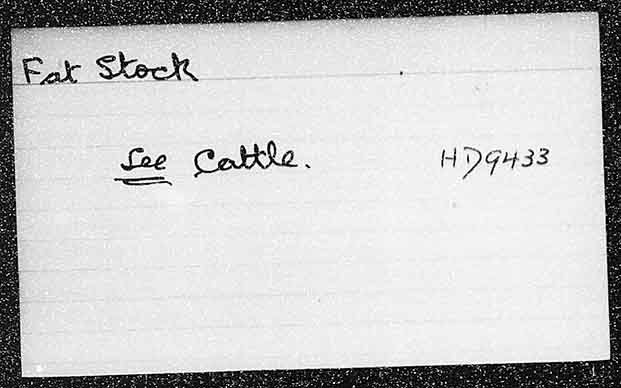 Fat Stock
See Cattle. HD9433